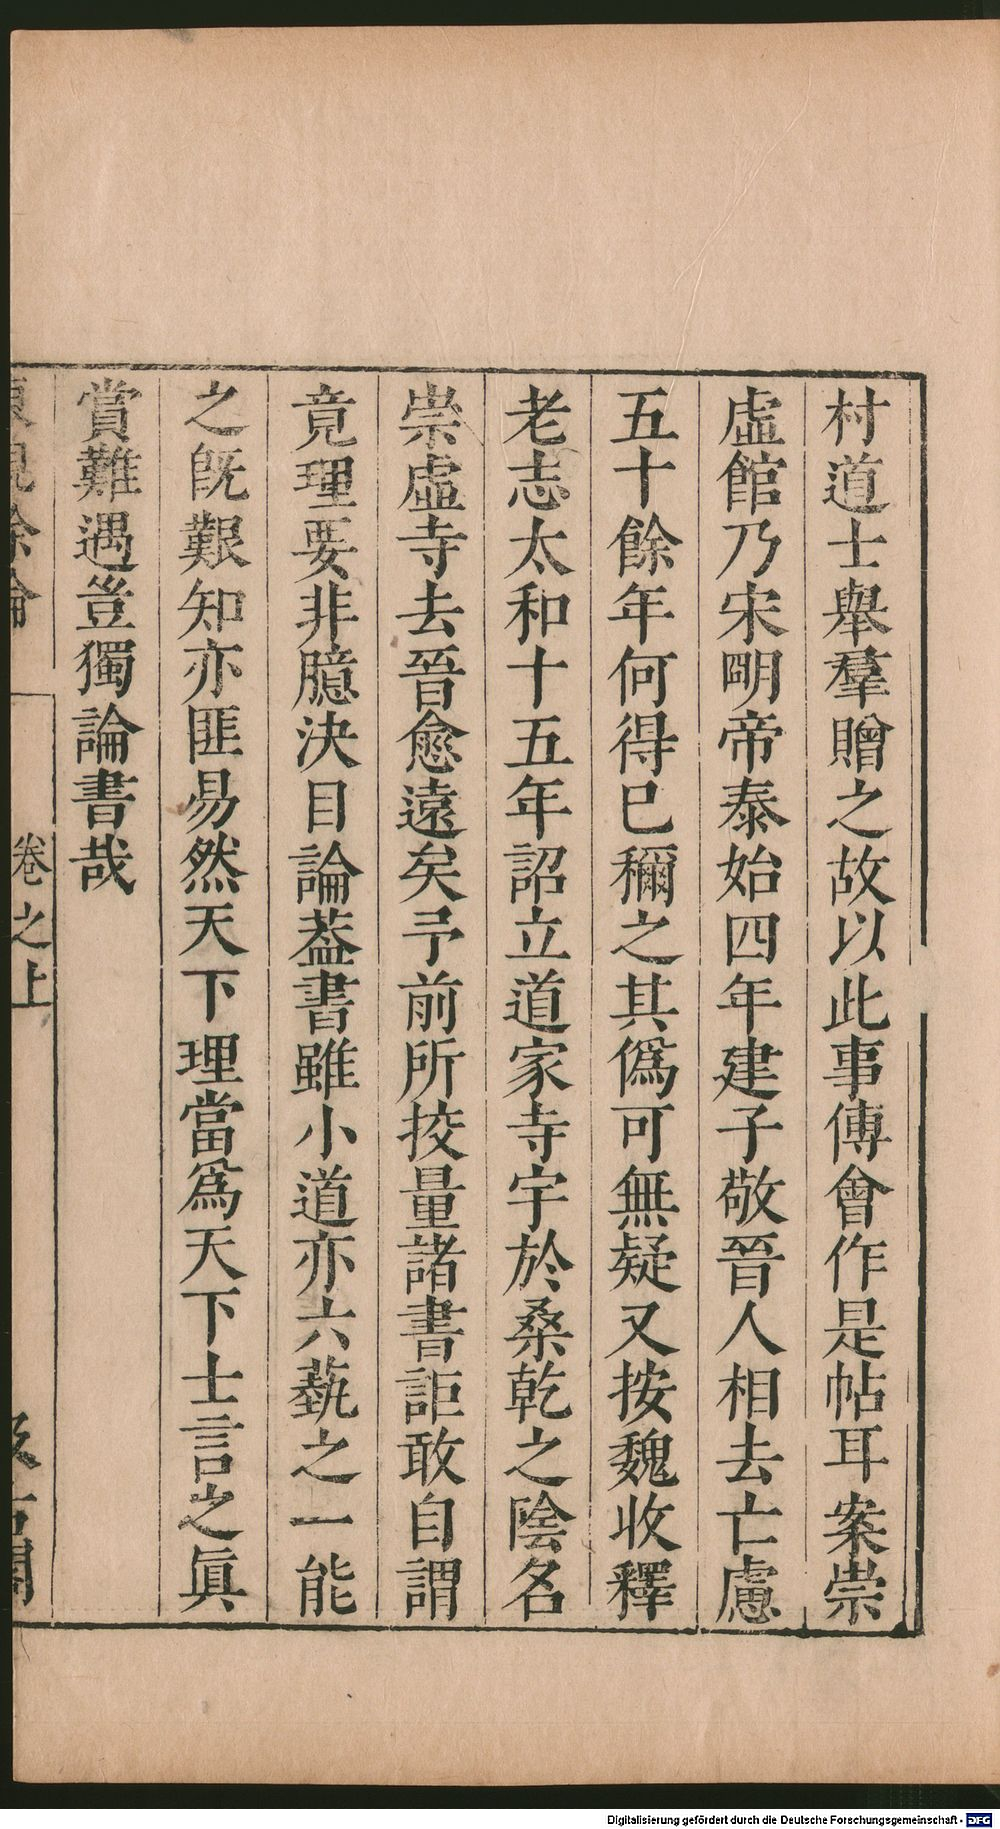 村道士舉羣贈之故以此事傅會作是帖耳案崇
虛館乃宋明帝泰始四年建子敬晉人相去亡慮
五十餘年何得已稱之其僞可無疑又按魏收釋
老志太和十五年詔立道家寺宇於桑乾之陰名
崇虛寺去晉愈遠矣予前所挍量諸書詎敢自謂
竟理要非臆決目論葢書雖小道亦六藝之一能
之旣艱知亦匪易然天下理當爲天下士言之眞
賞難遇豈獨論書哉
卷之上
Digitalisierung gefördert durch die Deutsche Forschungsgemeinschaft - DFG